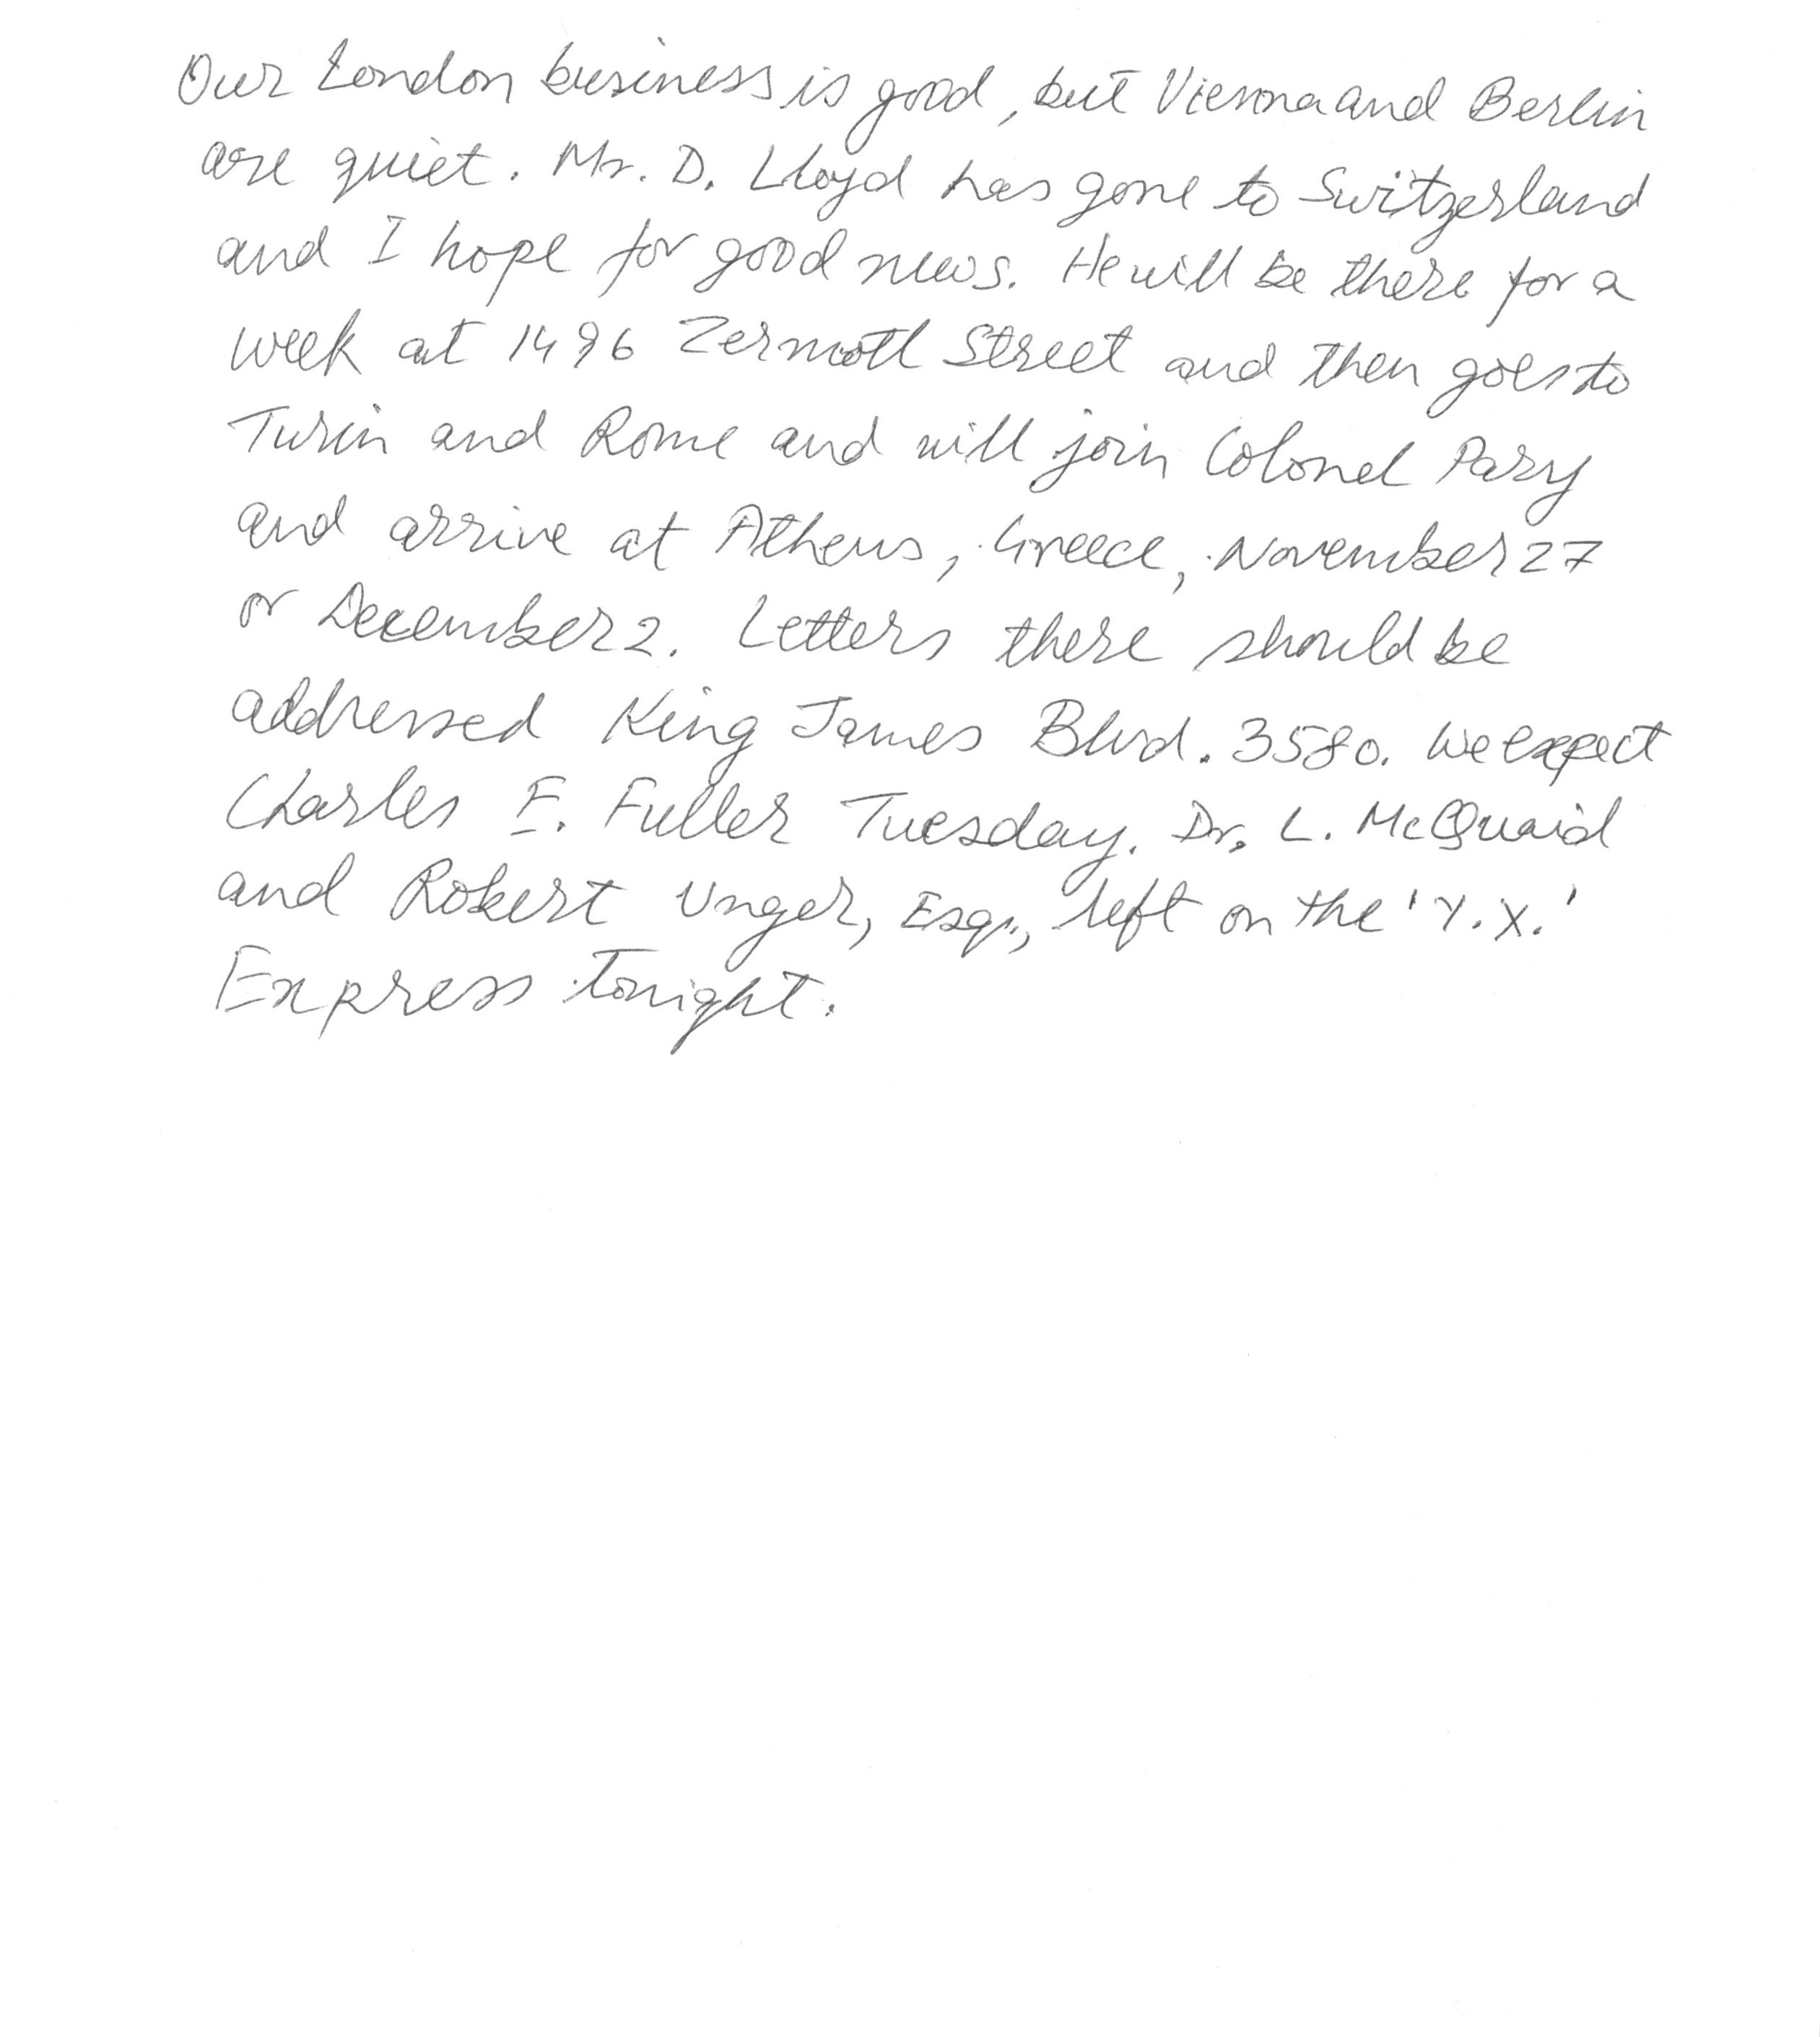 Our London business is good, but Vienna and Berlin
are quiet. Mr. D. Lloyd has gone to Switzerland
and I hope for good news. He will be there for a
week at 1496 Zermott Street and then goes to
Turin and Rome and will join Colonel Pary
and arrive at Athens, Greece, November 27
or December 2. Letters there should be
addressed King James Blvd. 3580. We expect
Charles E. Fuller Tuesday. Dr. L. McQuaid
and Robert Unger, Esq., left on the 'Y.X.'
Express tonight.